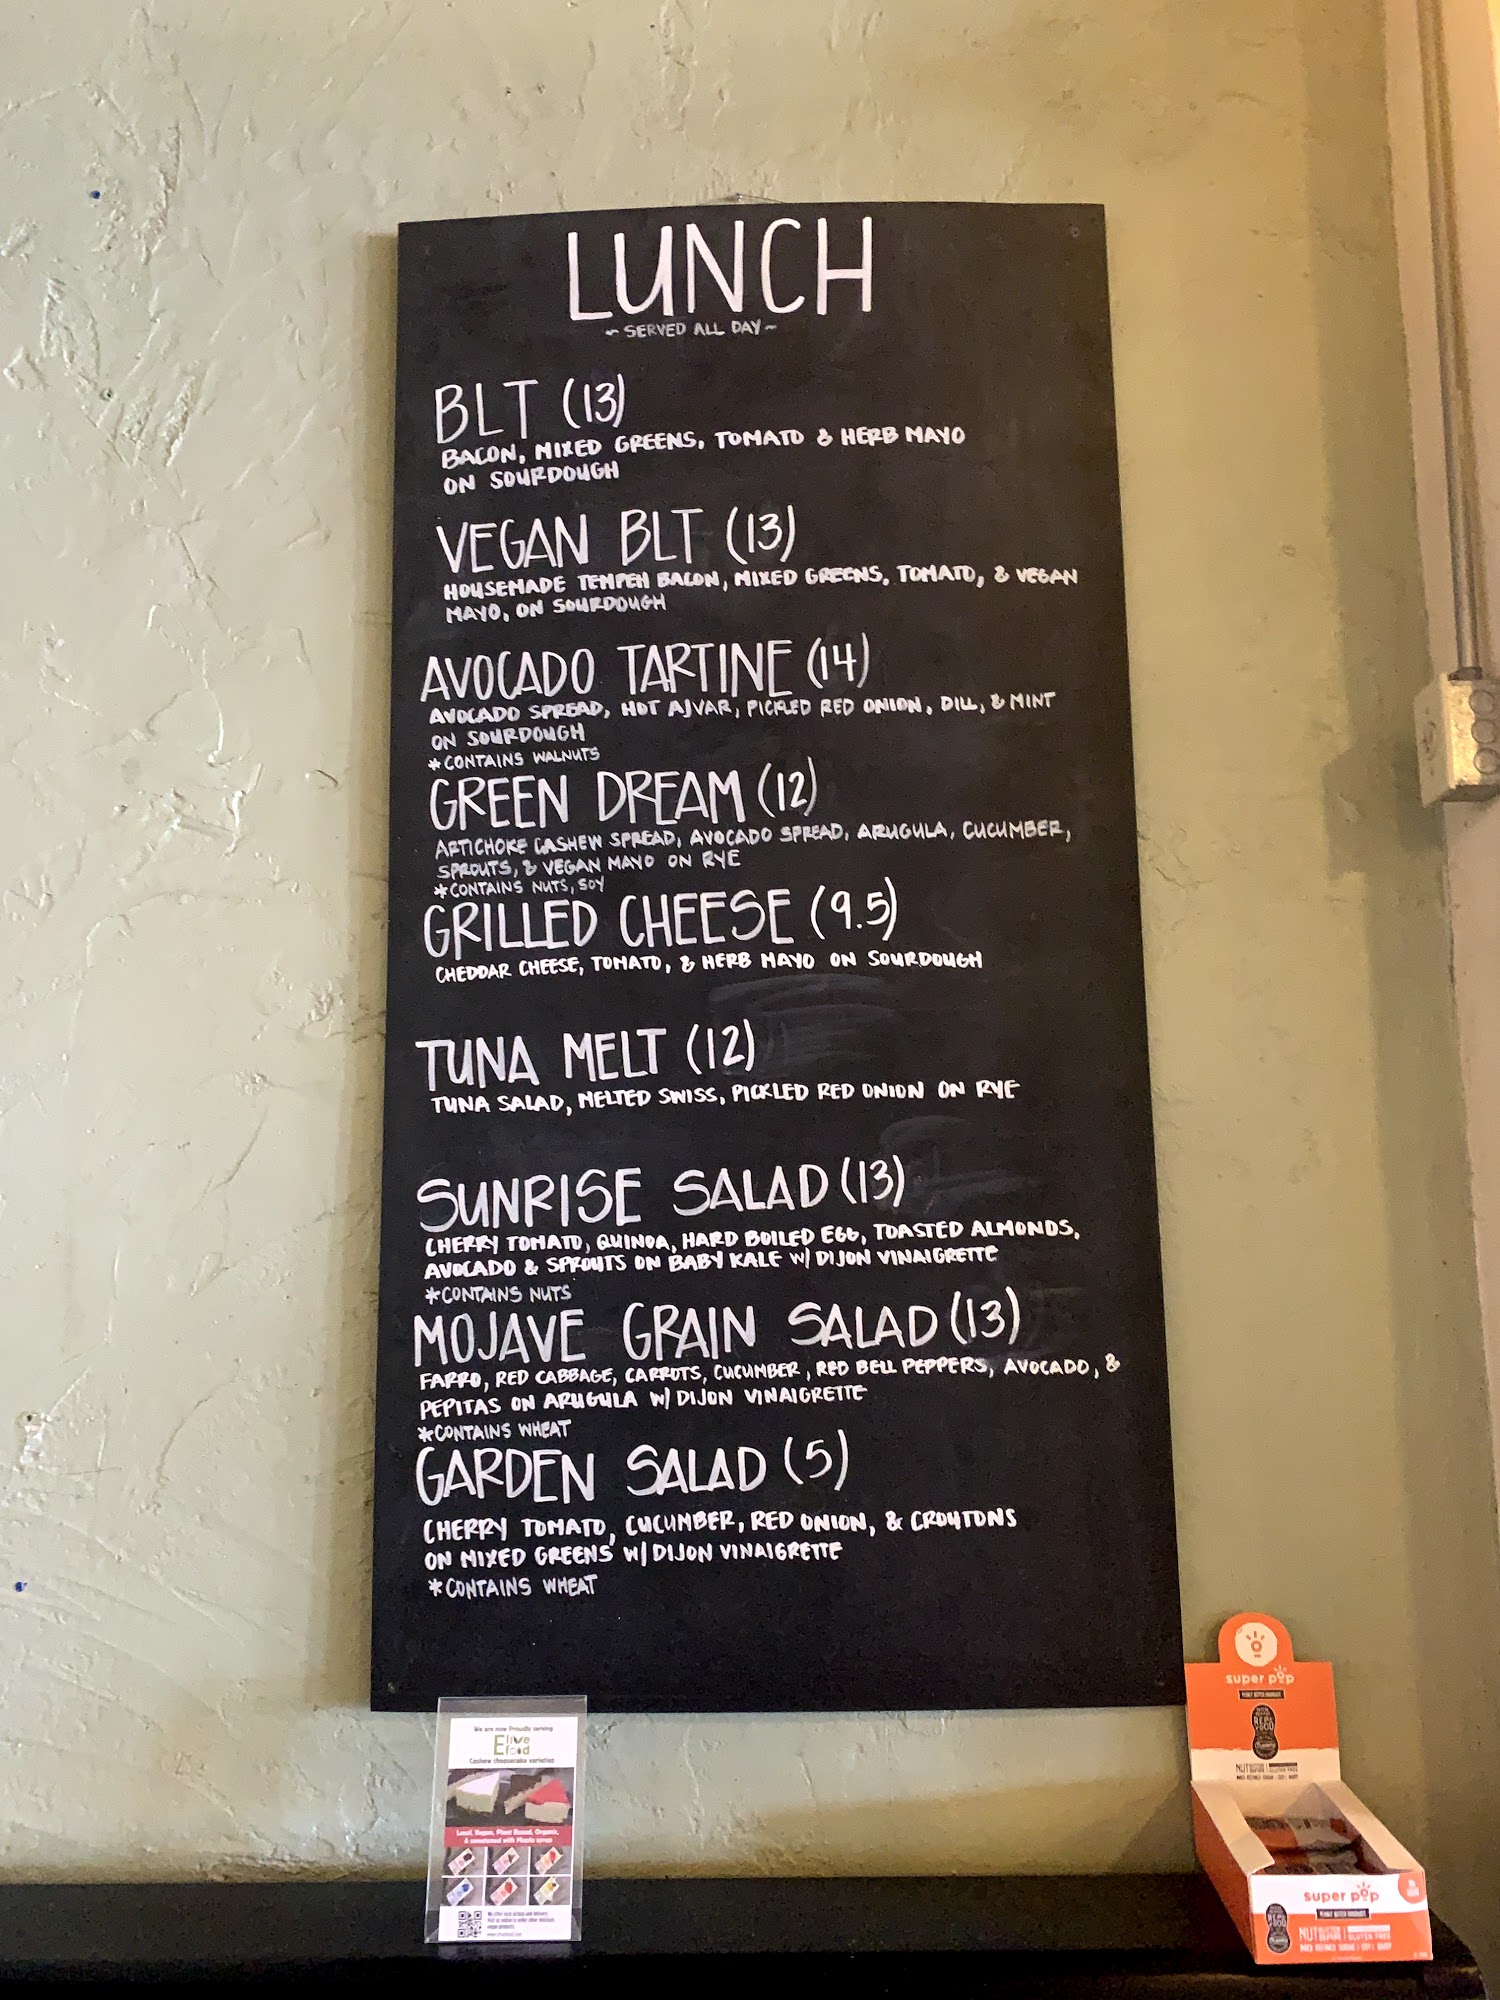 LUNCH
~ SERVED ALL DAY ~
BLT (13)
BACON, MIXED GREENS, TOMATO & HERB MAYO
ON SOURDOUGH
VEGAN BLT (13)
HOUSEMADE TEMPEH BACON, MIXED GREENS, TOMATO, & VEGAN
MAYO, ON SOURDOUGH
AVOCADO TARTINE (14)
AVOCADO SPREAD, HOT AJVAR, PICKLED RED ONION, DILL, & MINT
ON SOURDOUGH
*CONTAINS WALNUTS
GREEN DREAM (12)
ARTICHOKE CASHEW SPREAD, AVOCADO SPREAD, ARUGULA, CUCUMBER,
SPROUTS, & VEGAN MAYO ON RYE
*CONTAINS NUTS, SOY
GRILLED CHEESE (9.5)
CHEDDAR CHEESE, TOMATO, & HERB MAYO ON SOURDOUGH
TUNA MELT (12)
TUNA SALAD, MELTED SWISS, PICKLED RED ONION ON RYE
SUNRISE SALAD (13)
CHERRY TOMATO, QUINOA, HARD BOILED EGG, TOASTED ALMONDS,
AVOCADO & SPROUTS ON BABY KALE W/ DIJON VINAIGRETTE
*CONTAINS NUTS
MOJAVE GRAIN SALAD (13)
FARRO, RED CABBAGE, CARROTS, CUCUMBER, RED BELL PEPPERS, AVOCADO, &
PEPITAS ON ARUGULA W/ DIJON VINAIGRETTE
*CONTAINS WHEAT
GARDEN SALAD (5)
CHERRY TOMATO, CUCUMBER, RED ONION, & CROUTONS
ON MIXED GREENS W/ DIJON VINAIGRETTE
*CONTAINS WHEAT
We are now Proudly serving
Elive
food
Cashew cheesecake varieties
Local, Vegan, Plant Based, Organic,
& sweetened with Maple syrup
super pop
GLUTEN FREE
super pop
GLUTEN FREE